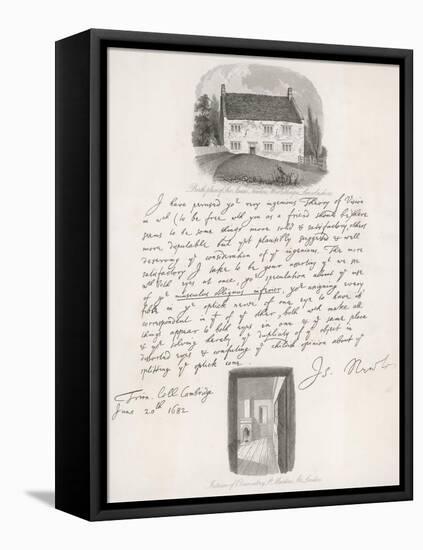 Birth place of Sir Isaac Newton, Woolsthorpe, Lincolnshire
I have perused yr very ingenious Theory of Vision
in wch (to be free wth you as a friend should be) there
seems to be some things more solid & satisfactory, others
more disputable but yet plausibly suggested & well
deserving ye consideration of ye ingenious. The more
satisfactory I take to be your asserting yt we see
wth both eyes at once, yr speculation about ye use
of ye musculus obliquus inferior, yr assigning every
fibre in ye optick nerve of one eye to have its
correspondent in yt of ye other, both wch make all
things appear to both eyes in one & ye same place
& yr solving hereby ye duplicity of ye object in
distorted eyes & confuting ye childish opinion about ye
splitting ye optick cone.
Is. Newto
Trin. Coll Cambridge
June 20th 1682
Interior of Observatory, St. Martins St. London